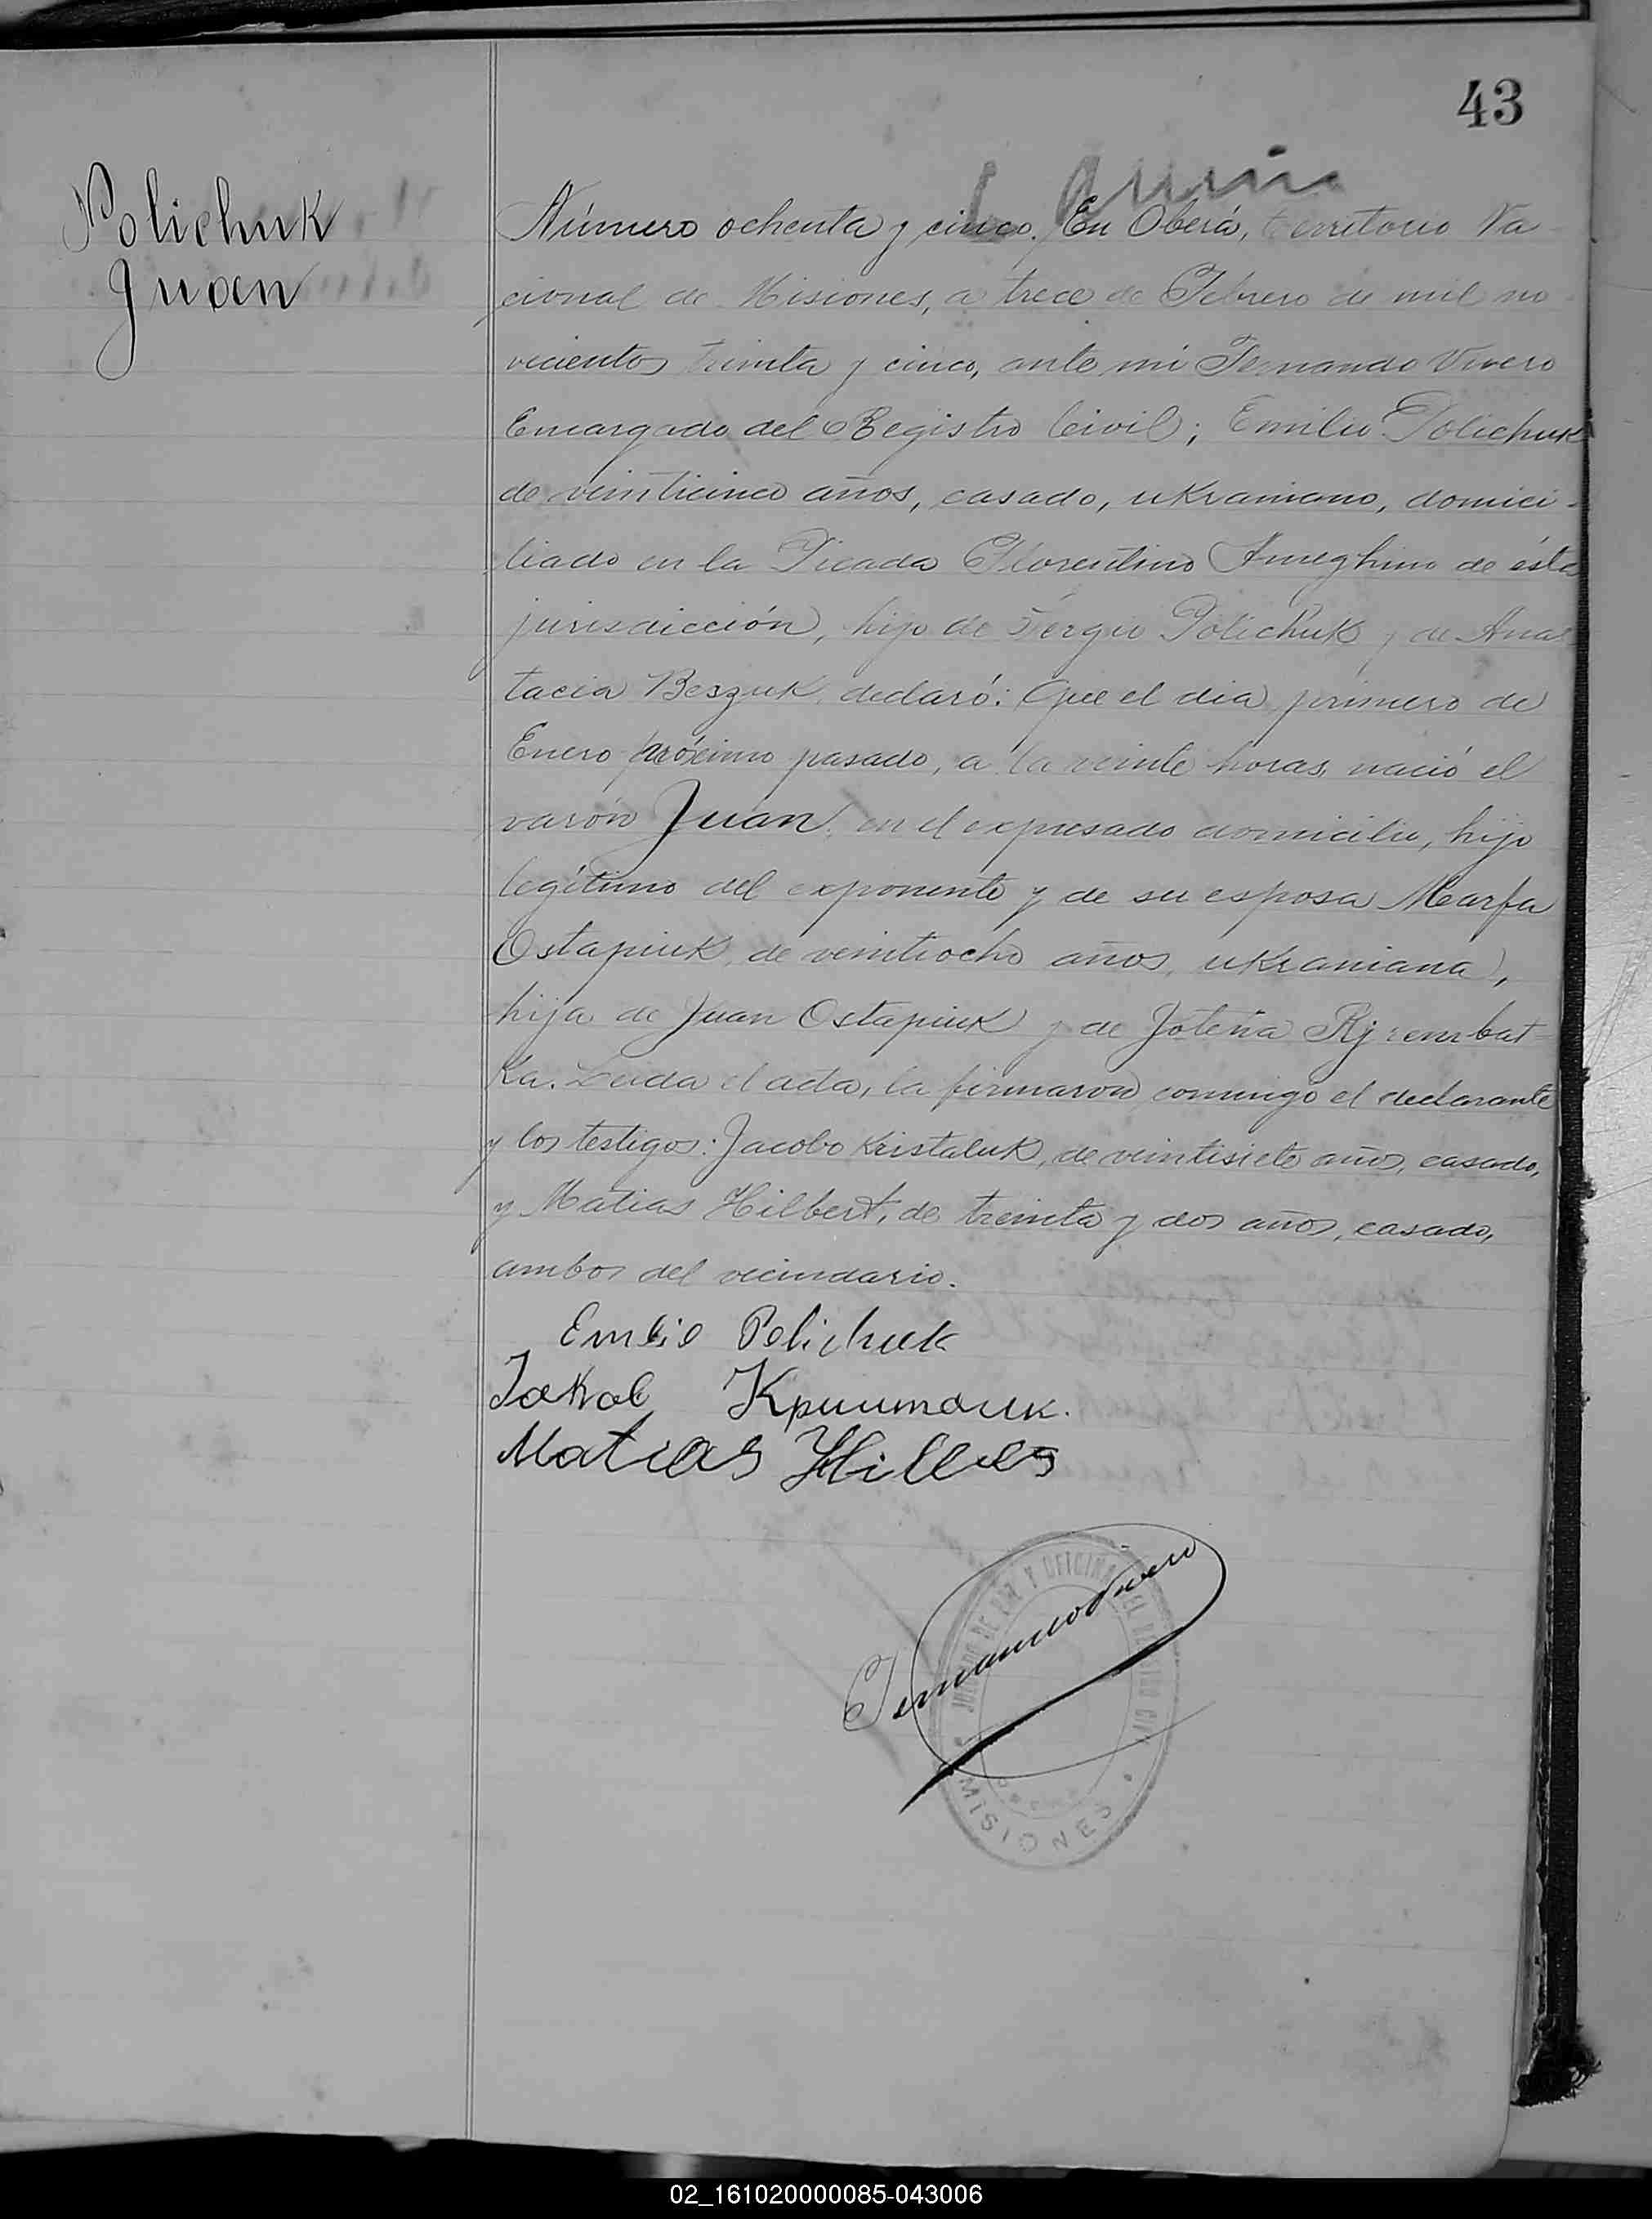 43
Polichuk
Juan
Número ochenta y cinco. En Oberá, territorio Na
cional de Misiones, a trece de Febrero de mil no
vecientos treinta y cinco, ante mi Fernando Vivero
Encargado del Registro Civil; Emilio Polichuk
de veinticinco años, casado, ukraniano, domici-
liado en la Picada Florentino Ameghino de ésta
jurisdicción, hijo de Sergio Polichuk y de Anas
tacia Beszuk, declaró: Que el dia primero de
Enero próximo pasado, a la veinte horas, nació el
varón Juan, en el expresado domicilio, hijo
legítimo del exponente y de su esposa Marfa
Ostapiuk, de veintiocho años, ukraniana,
hija de Juan Ostapiuk y de
ka. Leida el acta, la firmaron conmigo el declarante
y los testigos: Jacobo Kristaluk, de veintisiete años, casado,
y Matias Hilbert, de treinta y dos años, casado,
ambos del vecindario.
Emilio Polichuk
Matias
Fernando Vivero
JUZGADO DE PAZ Y OFICINA DEL REGISTRO CIVIL
MISIONES
02_161020000085-043006